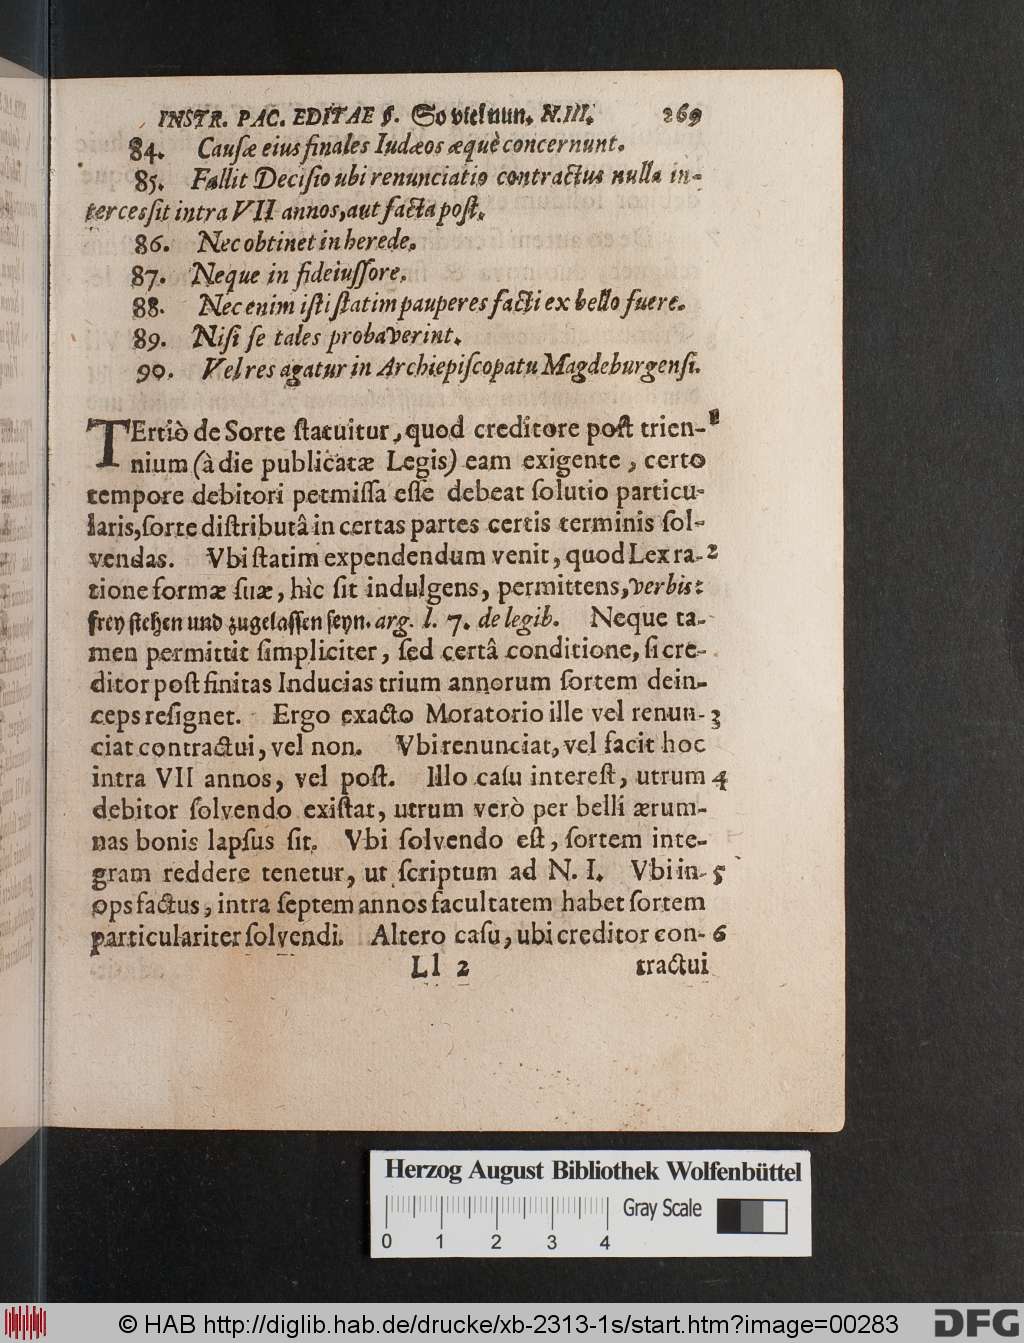 INSTR. PAC. EDITAE §. So viel nun. N. III. 269
84. Cauſæ eius finales Iudæos æquè concernunt.
85. Fallit Deciſio ubi renunciatio contractus nulla in-
terceſſit intra VII annos, aut facta poſt.
86. Nec obtinet in herede.
87. Neque in fideiuſſore.
88. Nec enim iſti ſtatim pauperes facti ex bello fuere.
89. Niſi ſe tales probaverint.
90. Vel res agatur in Archiepiſcopatu Magdeburgenſi.
TErtiò de Sorte ſtatuitur, quod creditore poſt trien- 1
nium (à die publicatæ Legis) eam exigente, certo
tempore debitori permiſſa eſſe debeat ſolutio particu-
laris, ſorte diſtributâ in certas partes certis terminis ſol-
vendas. Vbi ſtatim expendendum venit, quod Lex ra- 2
tione formæ ſuæ, hìc ſit indulgens, permittens, verbis:
frey ſtehen und zugelaſſen ſeyn. arg. l. 7. de legib. Neque ta-
men permittit ſimpliciter, ſed certâ conditione, ſi cre-
ditor poſt finitas Inducias trium annorum ſortem dein-
ceps reſignet. Ergo exacto Moratorio ille vel renun- 3
ciat contractui, vel non. Vbi renunciat, vel facit hoc
intra VII annos, vel poſt. Illo caſu intereſt, utrum 4
debitor ſolvendo exiſtat, utrum verò per belli ærum-
nas bonis lapſus ſit. Vbi ſolvendo eſt, ſortem inte-
gram reddere tenetur, ut ſcriptum ad N. I. Vbi in- 5
ops factus, intra ſeptem annos facultatem habet ſortem
particulariter ſolvendi. Altero caſu, ubi creditor con- 6
Ll 2 tractui
Herzog August Bibliothek Wolfenbüttel
Gray Scale
0 1 2 3 4
© HAB http://diglib.hab.de/drucke/xb-2313-1s/start.htm?image=00283
DFG